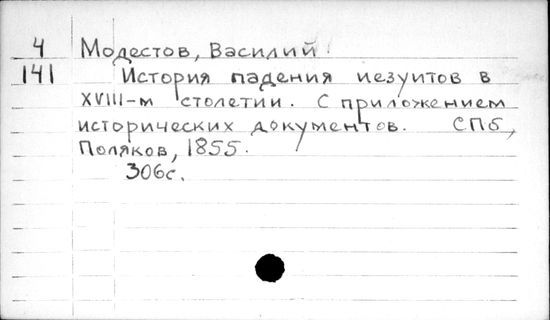 4 Модестов, Василий
141 История падения иезуитов в
XVIII-м столетии. С приложением
исторических документов. СПб,
Поляков, 1855.
306с.